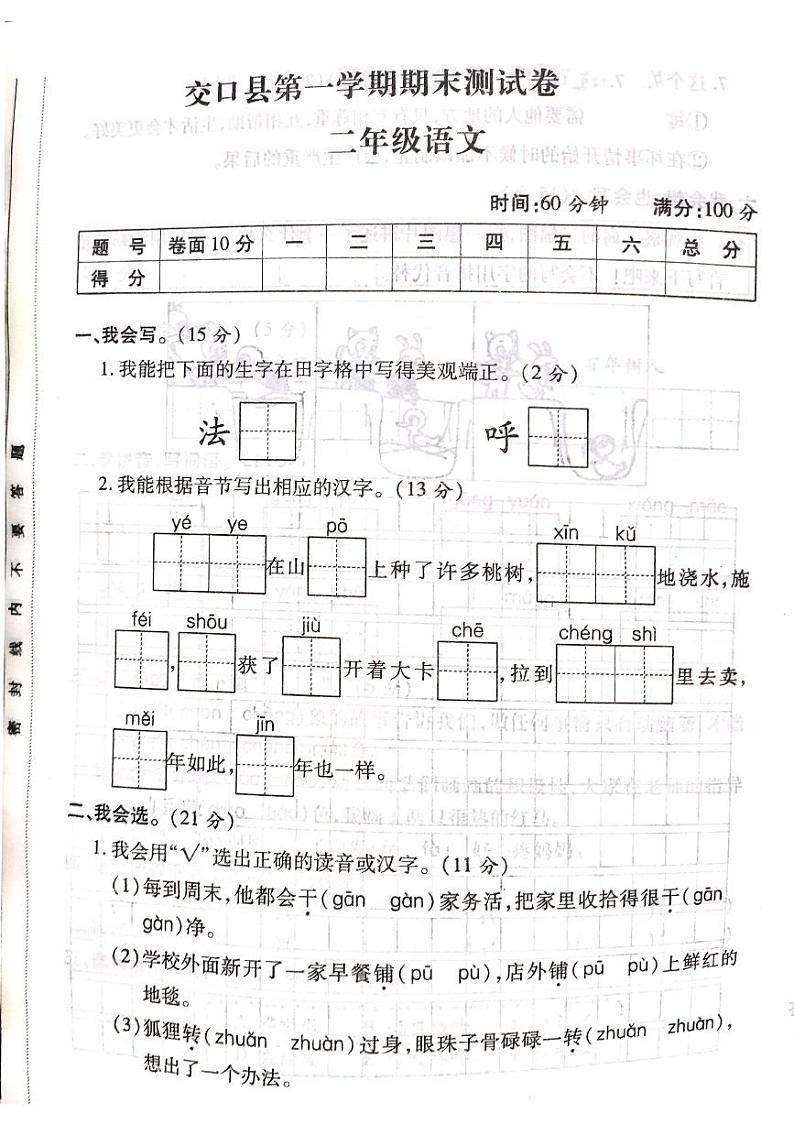 交口县第一学期期末测试卷
二年级语文
时间:60分钟 满分:100分
题 号 卷面10分 一 二 三 四 五 六 总 分
得 分
一、我会写。(15分)
1.我能把下面的生字在田字格中写得美观端正。(2分)
法 呼
2.我能根据音节写出相应的汉字。(13分)
yé ye pō xīn kǔ
在山 上种了许多桃树, 地浇水,施
féi shōu jiù chē chéng shì
, 获了 开着大卡 ,拉到 里去卖,
měi jīn
年如此, 年也一样。
二、我会选。(21分)
1.我会用“√”选出正确的读音或汉字。(11分)
(1)每到周末,他都会干(gān gàn)家务活,把家里收拾得很干(gān
gàn)净。
(2)学校外面新开了一家早餐铺(pū pù),店外铺(pū pù)上鲜红的
地毯。
(3)狐狸转(zhuǎn zhuàn)过身,眼珠子骨碌碌一转(zhuǎn zhuàn),
想出了一个办法。
密 封 线 内 不 要 答 题